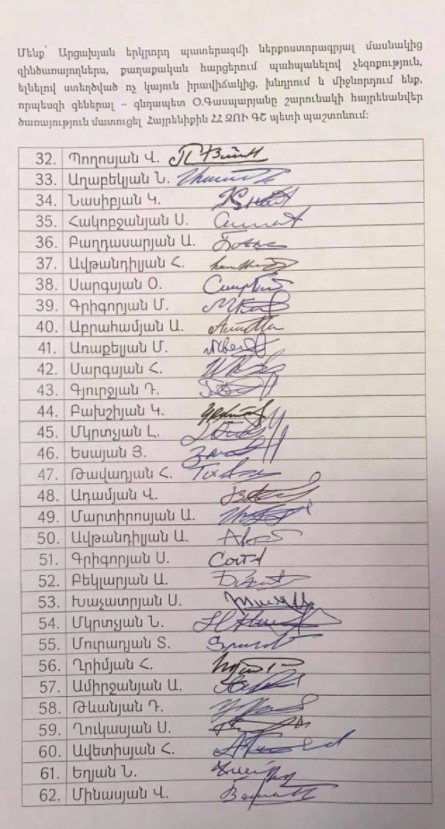 Մենք՝ Արցախյան երկրորդ պատերազմի ներքոստորագրյալ մասնակից
զինծառայողներս, քաղաքական հարցերում պահպանելով չեզոքություն,
ելնելով ստեղծված ոչ կայուն իրավիճակից, խնդրում և միջնորդում ենք,
որպեսզի գեներալ – գնդապետ Օ.Գասպարյանը շարունակի հայրենանվեր
ծառայություն մատուցել Հայրենիքին ՀՀ ԶՈՒ ԳՇ պետի պաշտոնում:
32. Պողոսյան Վ.
33. Աղաբեկյան Ն.
34. Նասիբյան Կ.
35. Հակոբջանյան Ս.
36. Բաղդասարյան Ա.
37. Ավթանդիլյան Հ.
38. Սարգսյան Օ.
39. Գրիգորյան Մ.
40. Աբրահամյան Ա.
41. Առաքելյան Մ.
42. Սարգսյան Հ.
43. Գյուրջյան Դ.
44. Բախշիյան Կ.
45. Մկրտչյան Լ.
46. Եսայան Յ.
47. Թավադյան Հ.
48. Ադամյան Վ.
49. Մարտիրոսյան Ա.
50. Ավթանդիլյան Ա.
51. Գրիգորյան Ս.
52. Բեկլարյան Ա.
53. Խաչատրյան Ս.
54. Մկրտչյան Ն.
55. Մուրադյան Տ.
56. Ղրիմյան Հ.
57. Ամիրջանյան Ա.
58. Թևանյան Դ.
59. Ղուկասյան Ս.
60. Ավետիսյան Հ.
61. Եղյան Ն.
62. Մինասյան Վ.